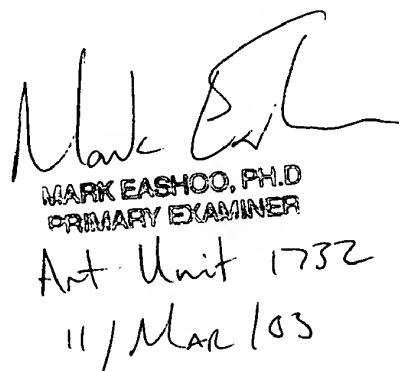 Mark Eashoo
MARK EASHOO, PH.D
PRIMARY EXAMINER
Art Unit 1732
11/MAR/03